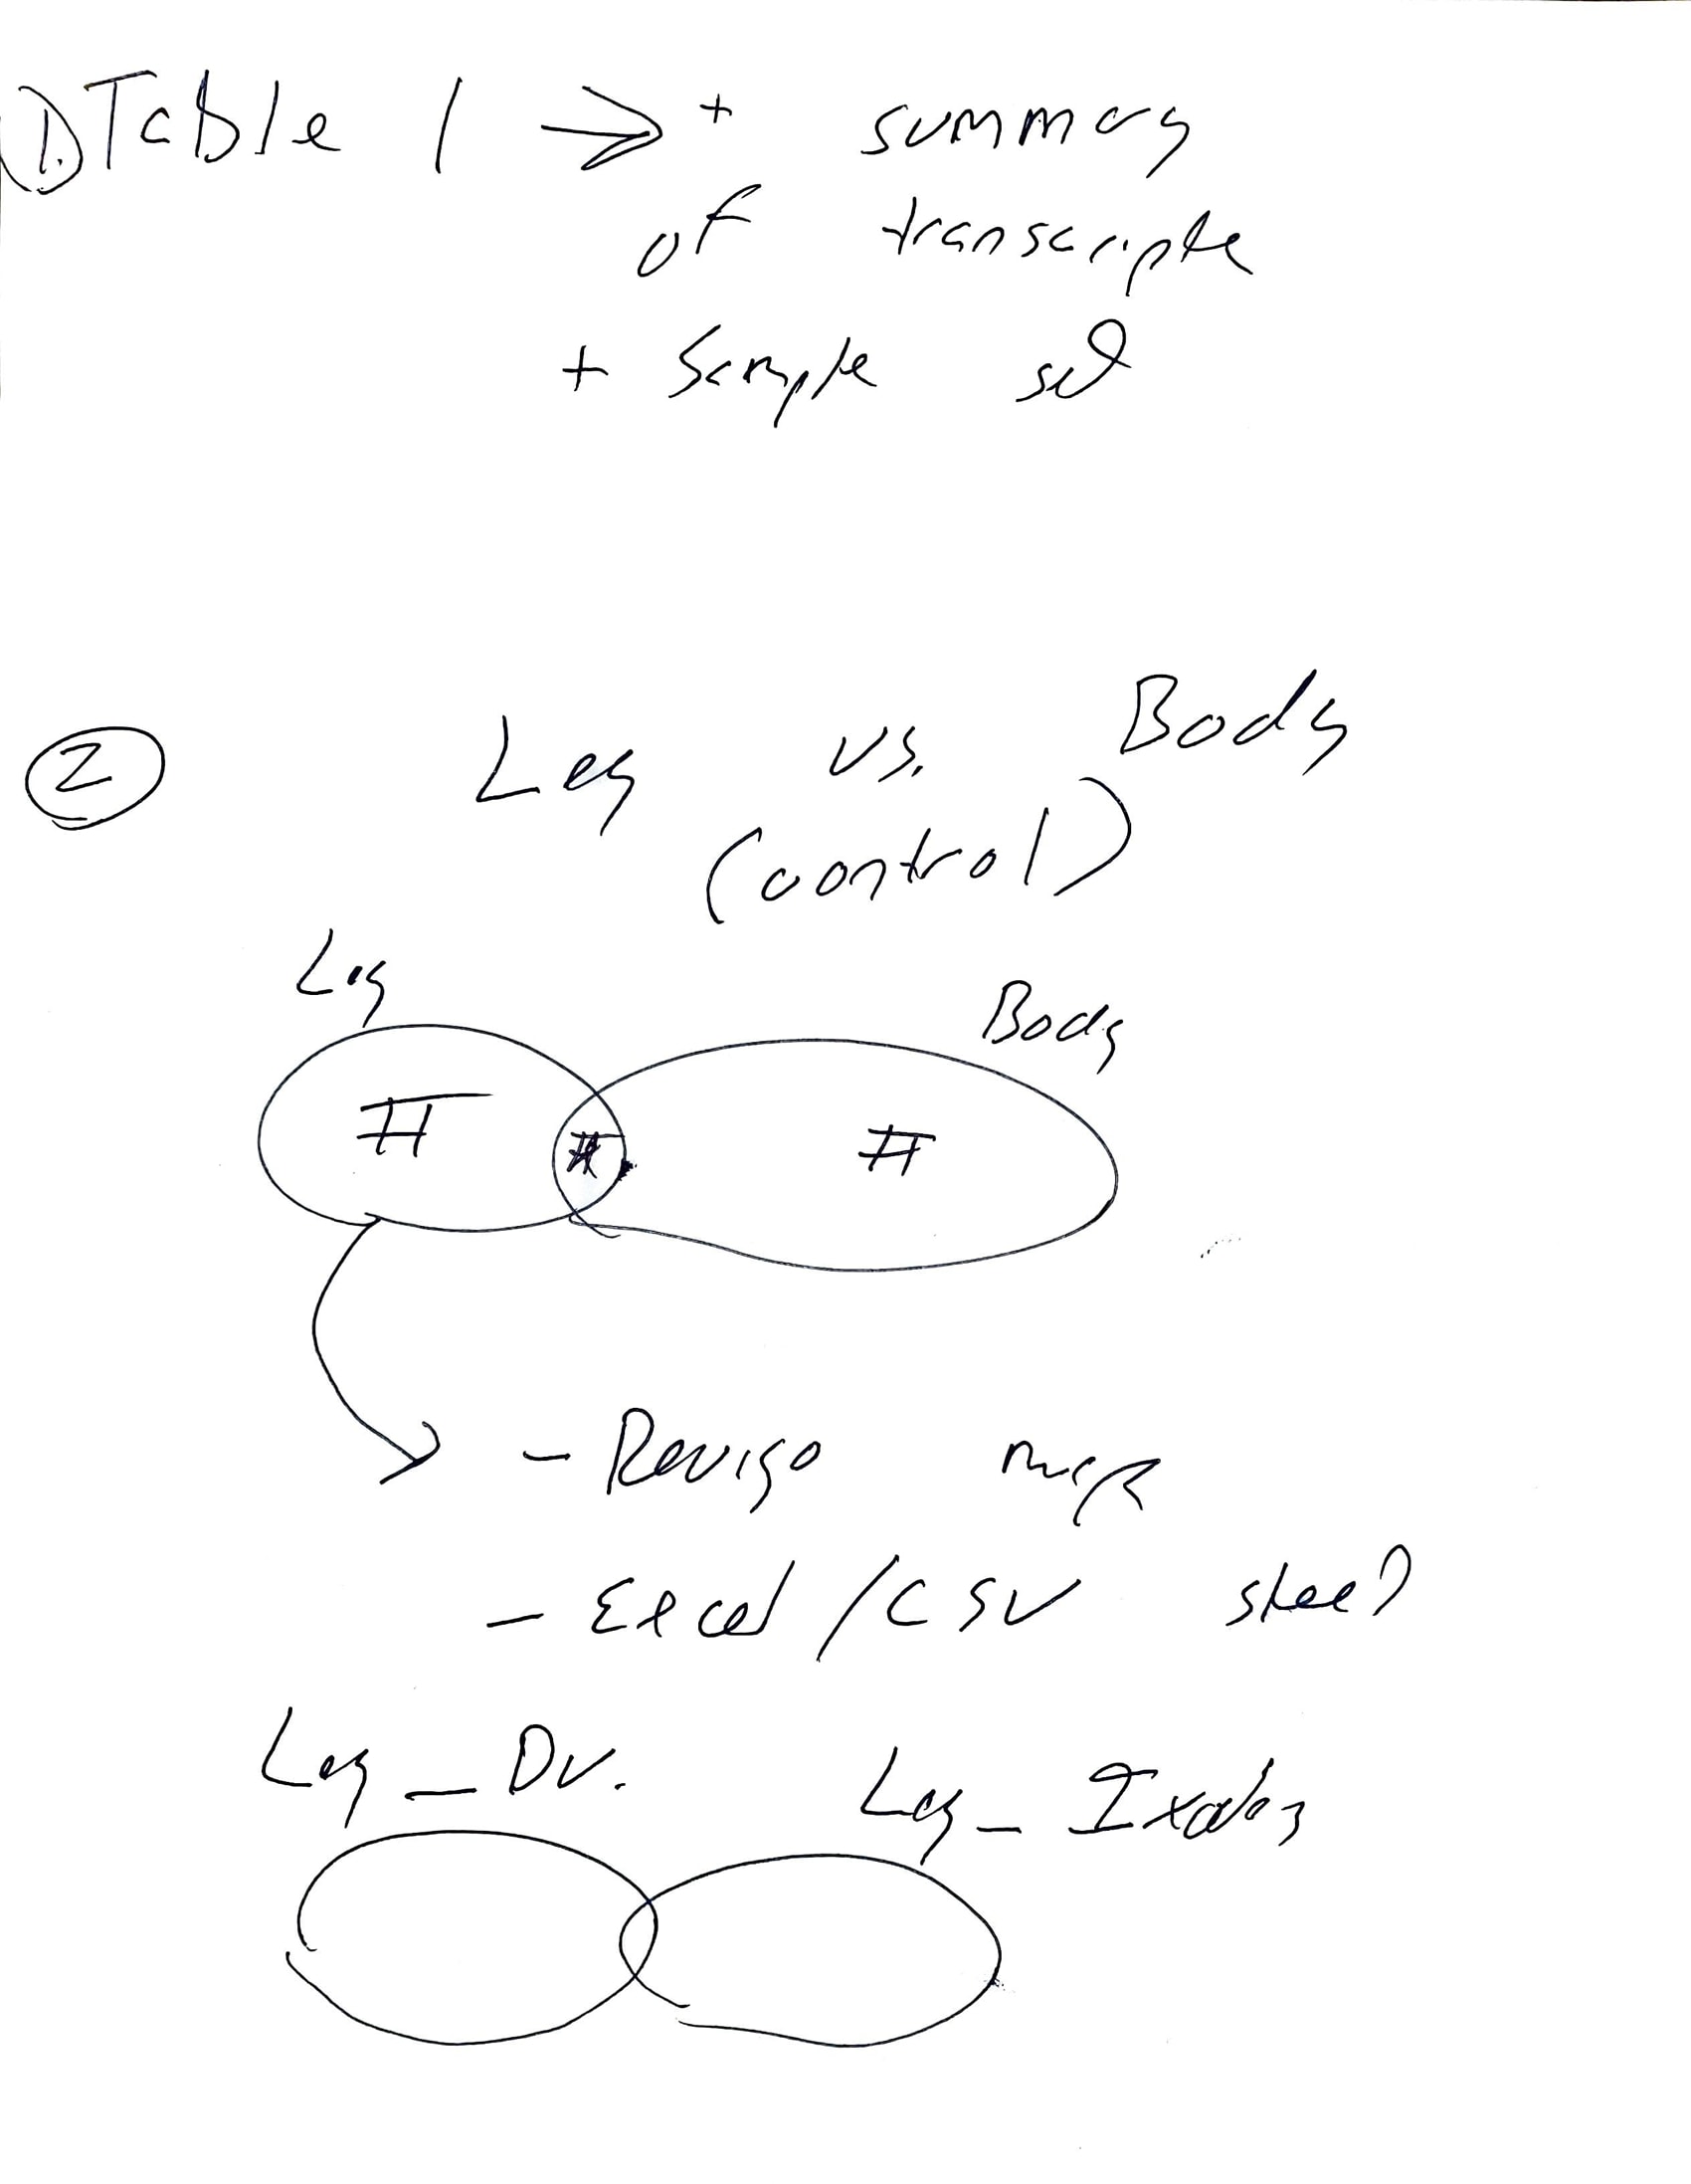 1. Table 1 → + summary
of transcripts
+ Sample set
2 Leg vs. Body
(control)
Leg
Body
# # #
- Revigo maps
- Excel/CSV sheet
Leg_DV. Leg_Ixodes